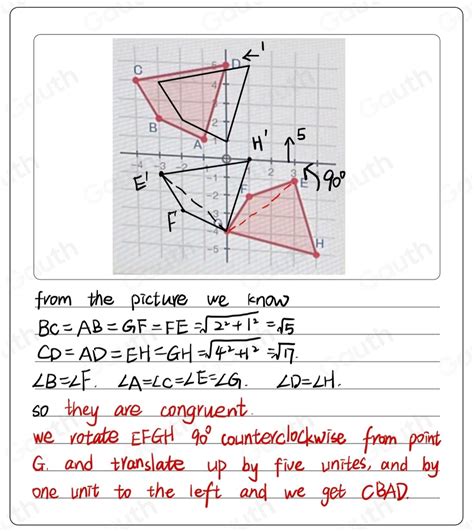 C
5
D
← 1
4
B
2
A
H'
↑ 5
-4 -3 -2
2
3
E
90°
E'
-1
F
-2
F
G
-4
H
-5
from the picture we know
BC = AB = GF = FE = √2²+1² = √5
CD = AD = EH = GH = √4²+1² = √17.
∠B=∠F. ∠A=∠C=∠E=∠G. ∠D=∠H.
so they are congruent.
we rotate EFGH 90° counterclockwise from point
G. and translate up by five unites, and by
one unit to the left and we get CBAD.
Gauth